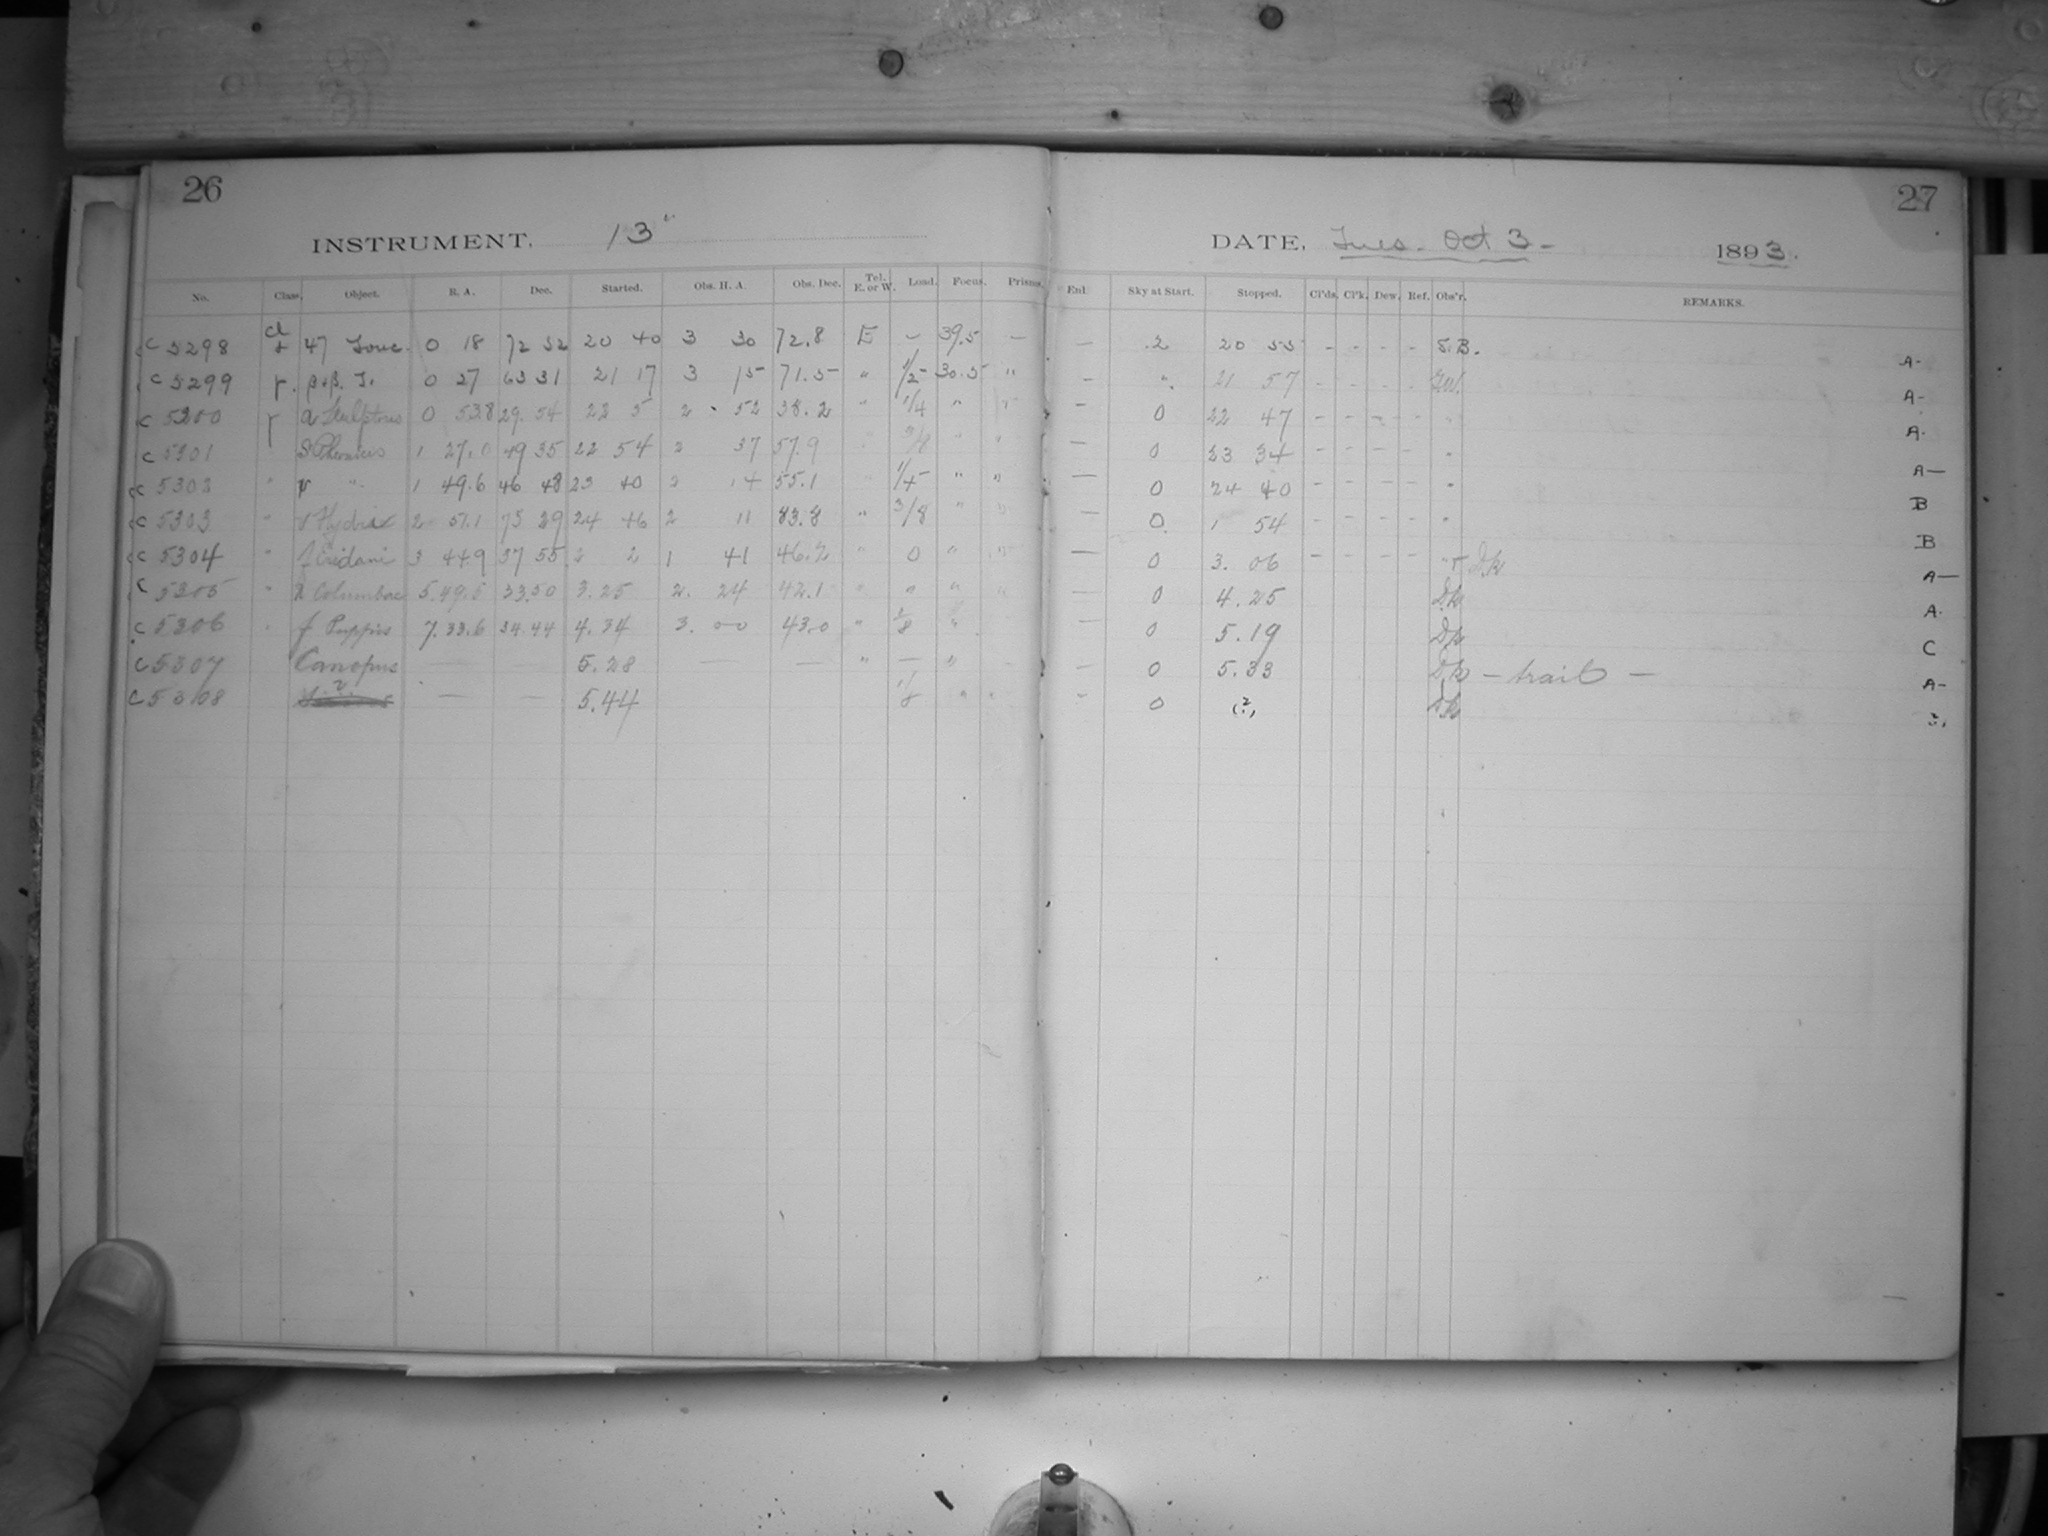 26
27
INSTRUMENT, 13"
DATE, Tues. Oct 3 - 1893.
No. Class. Object. R. A. Dec. Started. Obs. H. A. Obs. Dec. Tel. E. or W. Load. Focus. Prisms. Enl. Sky at Start. Stopped. Cl'ds. Cl'k. Dew. Ref. Obs'r. REMARKS.
C 5298 Cl 47 Touc. 0 18 72 52 20 40 3 30 72.8 E - 39.5 - - 2 20 55 - - - - S.B. A-
C 5299 r. β+β. T. 0 27 63 31 21 17 3 15 71.5 " 1/2 30.5 " - " 21 57 - - - - A-
C 5300 r α Sculptoris 0 53.8 29.54 22 5 2 52 38.2 " 1/4 " " - 0 22 47 - - - - " A-
C 5301 1 27.0 49 35 22 54 2 37 57.9 " 3/8 " " - 0 23 34 - - - - " A-
C 5302 " " 1 49.6 46 48 23 40 14 55.1 " " - 0 24 40 - - - - " B
C 5303 " Hydri 2 75 29 24 46 2 11 83.8 " 3/8 " " - 0 1 54 - - - - " B
C 5304 " f Eridani 3 44.9 37 55 2 2 1 41 46.2 " 0 " " - 0 3. 06 - - - - Dk A-
C 5305 " Columbae 5.49.5 33.50 3.25 2. 24 42.1 " " " " - 0 4.25 Dk A-
C 5306 " f Puppis 7.33.6 34.44 4.34 3. 00 43.0 " " - 0 5.19 Dk C
C 5307 Canopus - - 5.28 - - " - " - 0 5.33 Dk - trail - A-
C 5308 ? - - 5.44 1/8 " " - 0 (?) Dk